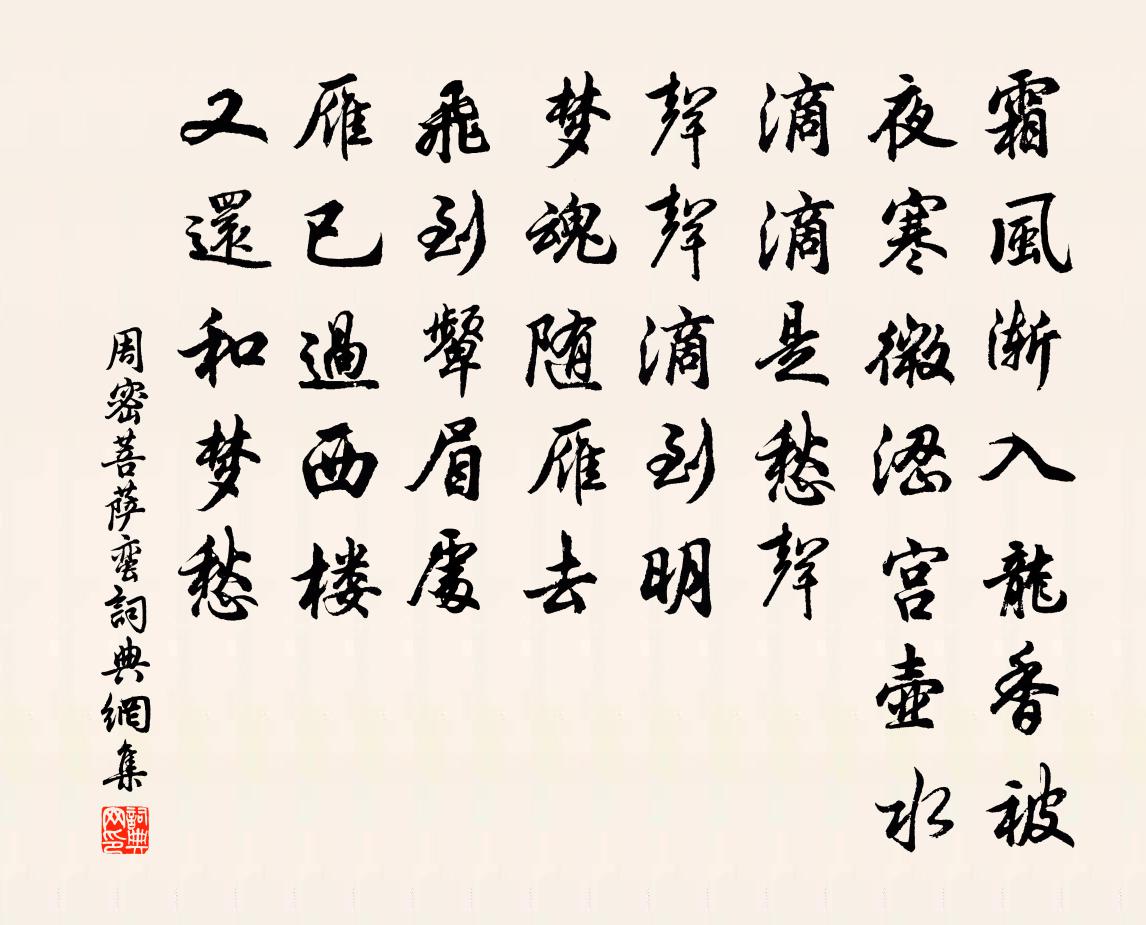 霜風渐入龍香被
夜寒微涩宫壺水
滴滴是愁聲
聲聲滴到明
梦魂随雁去
飛到顰眉處
雁已過西楼
又還和梦愁
周密菩萨蛮詞典網集
詞典网印